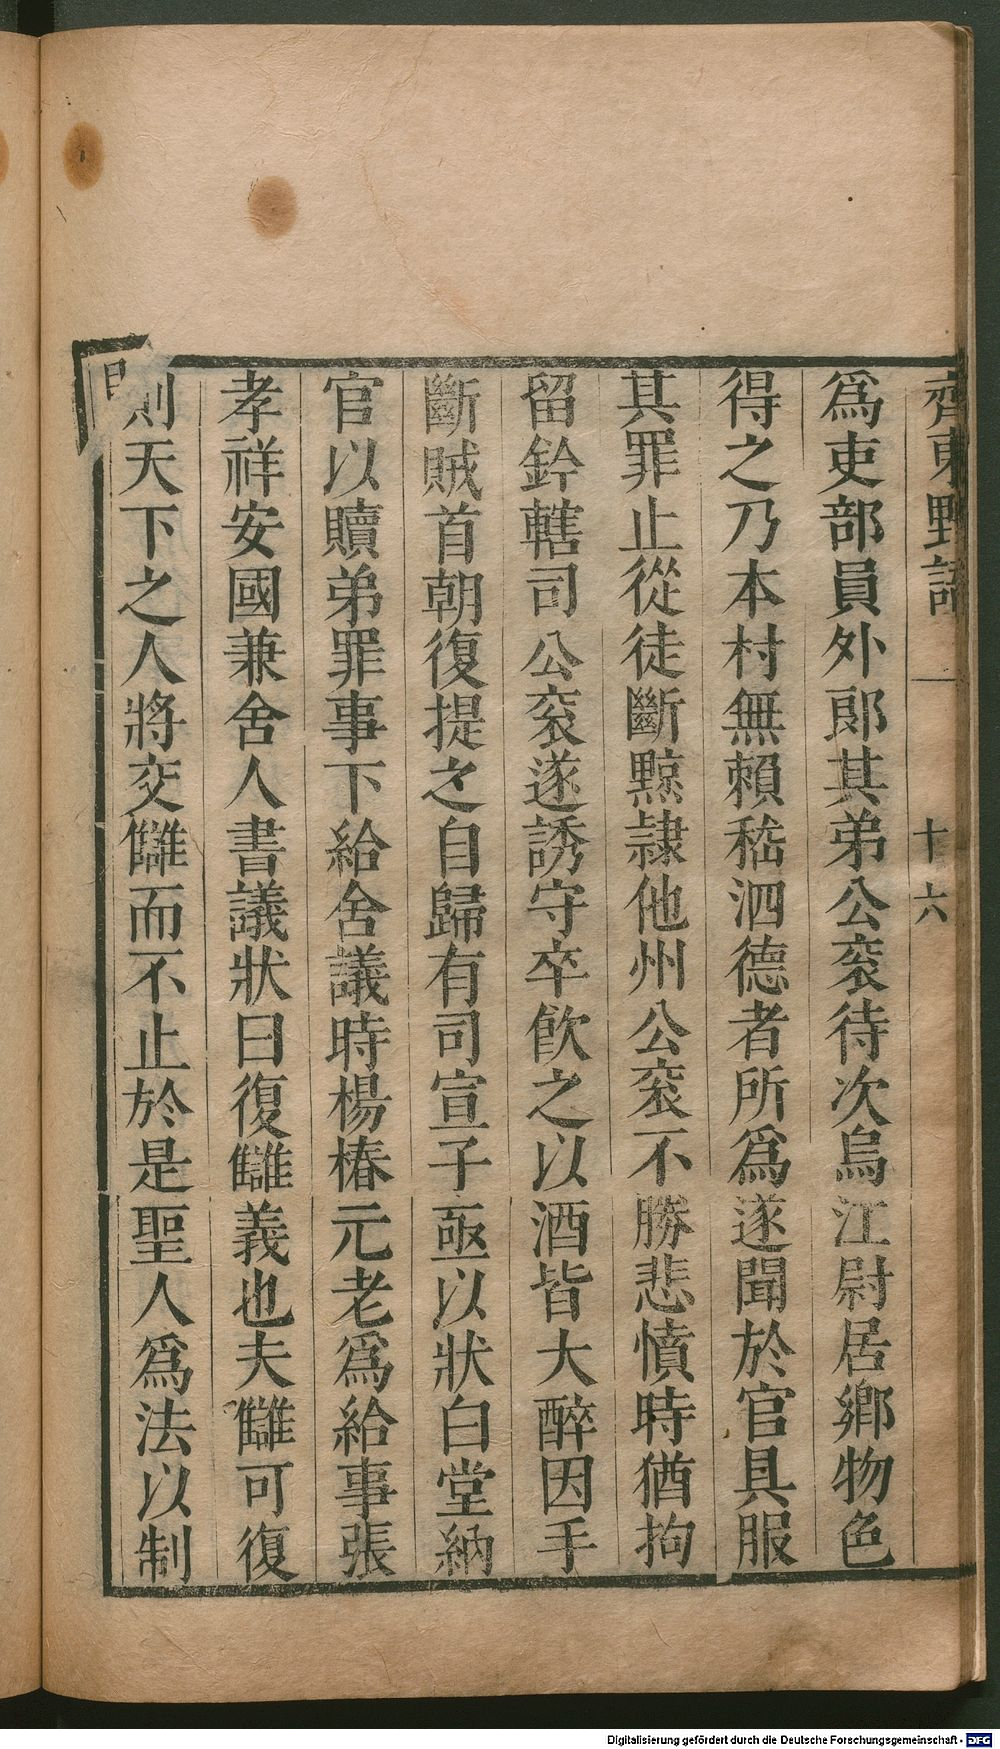 齊東野語 一 十六
爲吏部員外郎其弟公袞待次烏江尉居鄉物色
得之乃本村無賴嵇泗德者所爲遂聞於官具服
其罪止從徒斷黥隷他州公袞不勝悲憤時猶拘
留鈐轄司公袞遂誘守卒飲之以酒皆大醉因手
斷賊首朝復提之自歸有司宣子亟以狀白堂納
官以贖弟罪事下給舍議時楊椿元老爲給事張
孝祥安國兼舍人書議狀曰復讎義也夫讎可復
則天下之人將交讎而不止於是聖人爲法以制
Digitalisierung gefördert durch die Deutsche Forschungsgemeinschaft - DFG